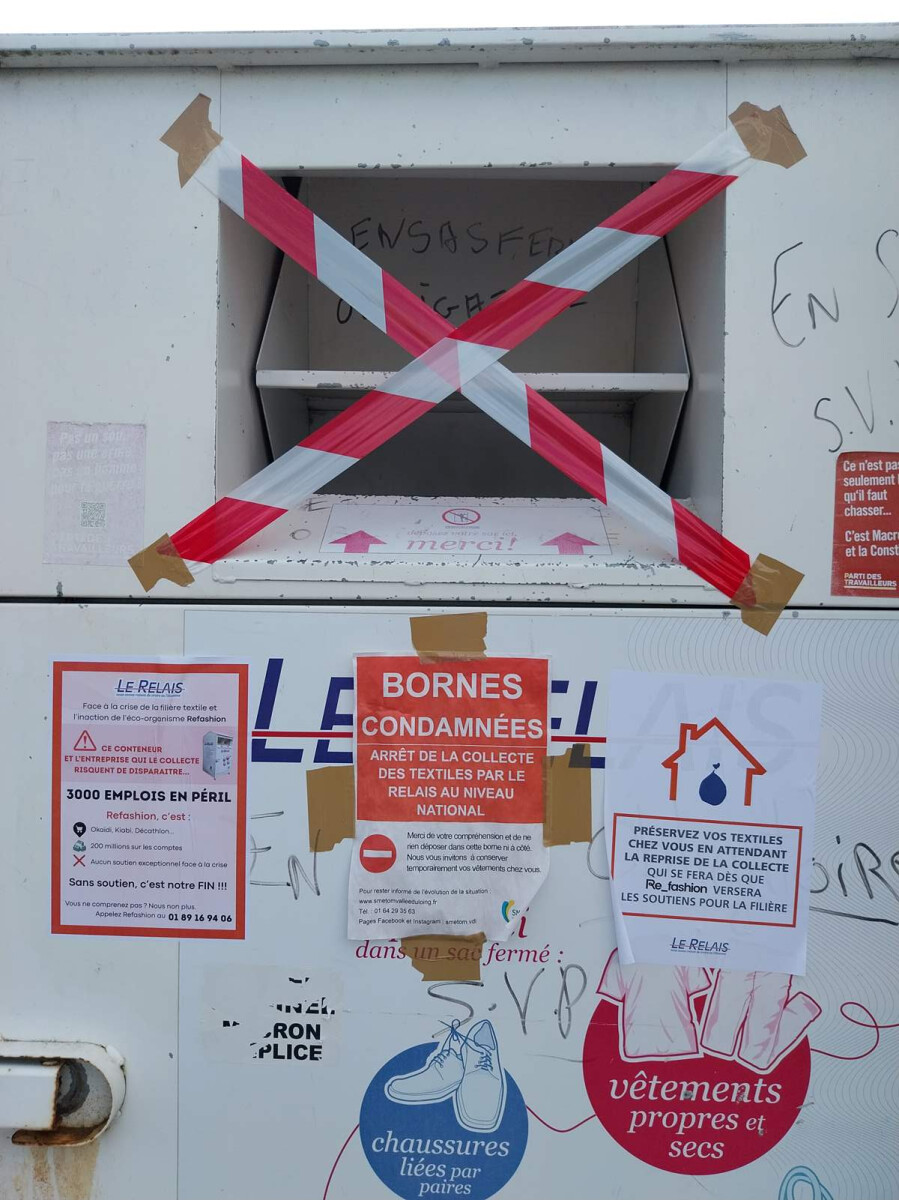 ENSASFE
EN S
S.V.
Pas un sou,
pas une arme,
pas un homme
TRAVAILLEURS
Ce n'est pas
seulement
qu'il faut
chasser...
C'est Macron
et la Const
PARTI DES
TRAVAILLEURS
déposez votre sac ici
merci!
LE RELAIS
Face à la crise de la filière textile et
l'inaction de l'éco-organisme Refashion
CE CONTENEUR
ET L'ENTREPRISE QUI LE COLLECTE
RISQUENT DE DISPARAITRE...
3000 EMPLOIS EN PÉRIL
Refashion, c'est :
Okaïdi, Kiabi, Décathlon...
200 millions sur les comptes
Aucun soutien exceptionnel face à la crise
Sans soutien, c'est notre FIN !!!
Vous ne comprenez pas ? Nous non plus.
Appelez Refashion au 01 89 16 94 06
LE RELAIS
BORNES
CONDAMNÉES
ARRÊT DE LA COLLECTE
DES TEXTILES PAR LE
RELAIS AU NIVEAU
NATIONAL
Merci de votre compréhension et de ne
rien déposer dans cette borne ni à côté.
Nous vous invitons à conserver
temporairement vos vêtements chez vous.
Pour rester informé de l'évolution de la situation
www.smetomvalleeduloing.fr
Tél : 01 64 29 35 63
Pages Facebook et Instagram : smetom.vdl
PRÉSERVEZ VOS TEXTILES
CHEZ VOUS EN ATTENDANT
LA REPRISE DE LA COLLECTE
QUI SE FERA DÈS QUE
Re_fashion VERSERA
LES SOUTIENS POUR LA FILIÈRE
LE RELAIS
EN
OIRE
dans un sac fermé :
S.V.P
CRON
PLICE
chaussures
liées par
paires
vêtements
propres et
secs